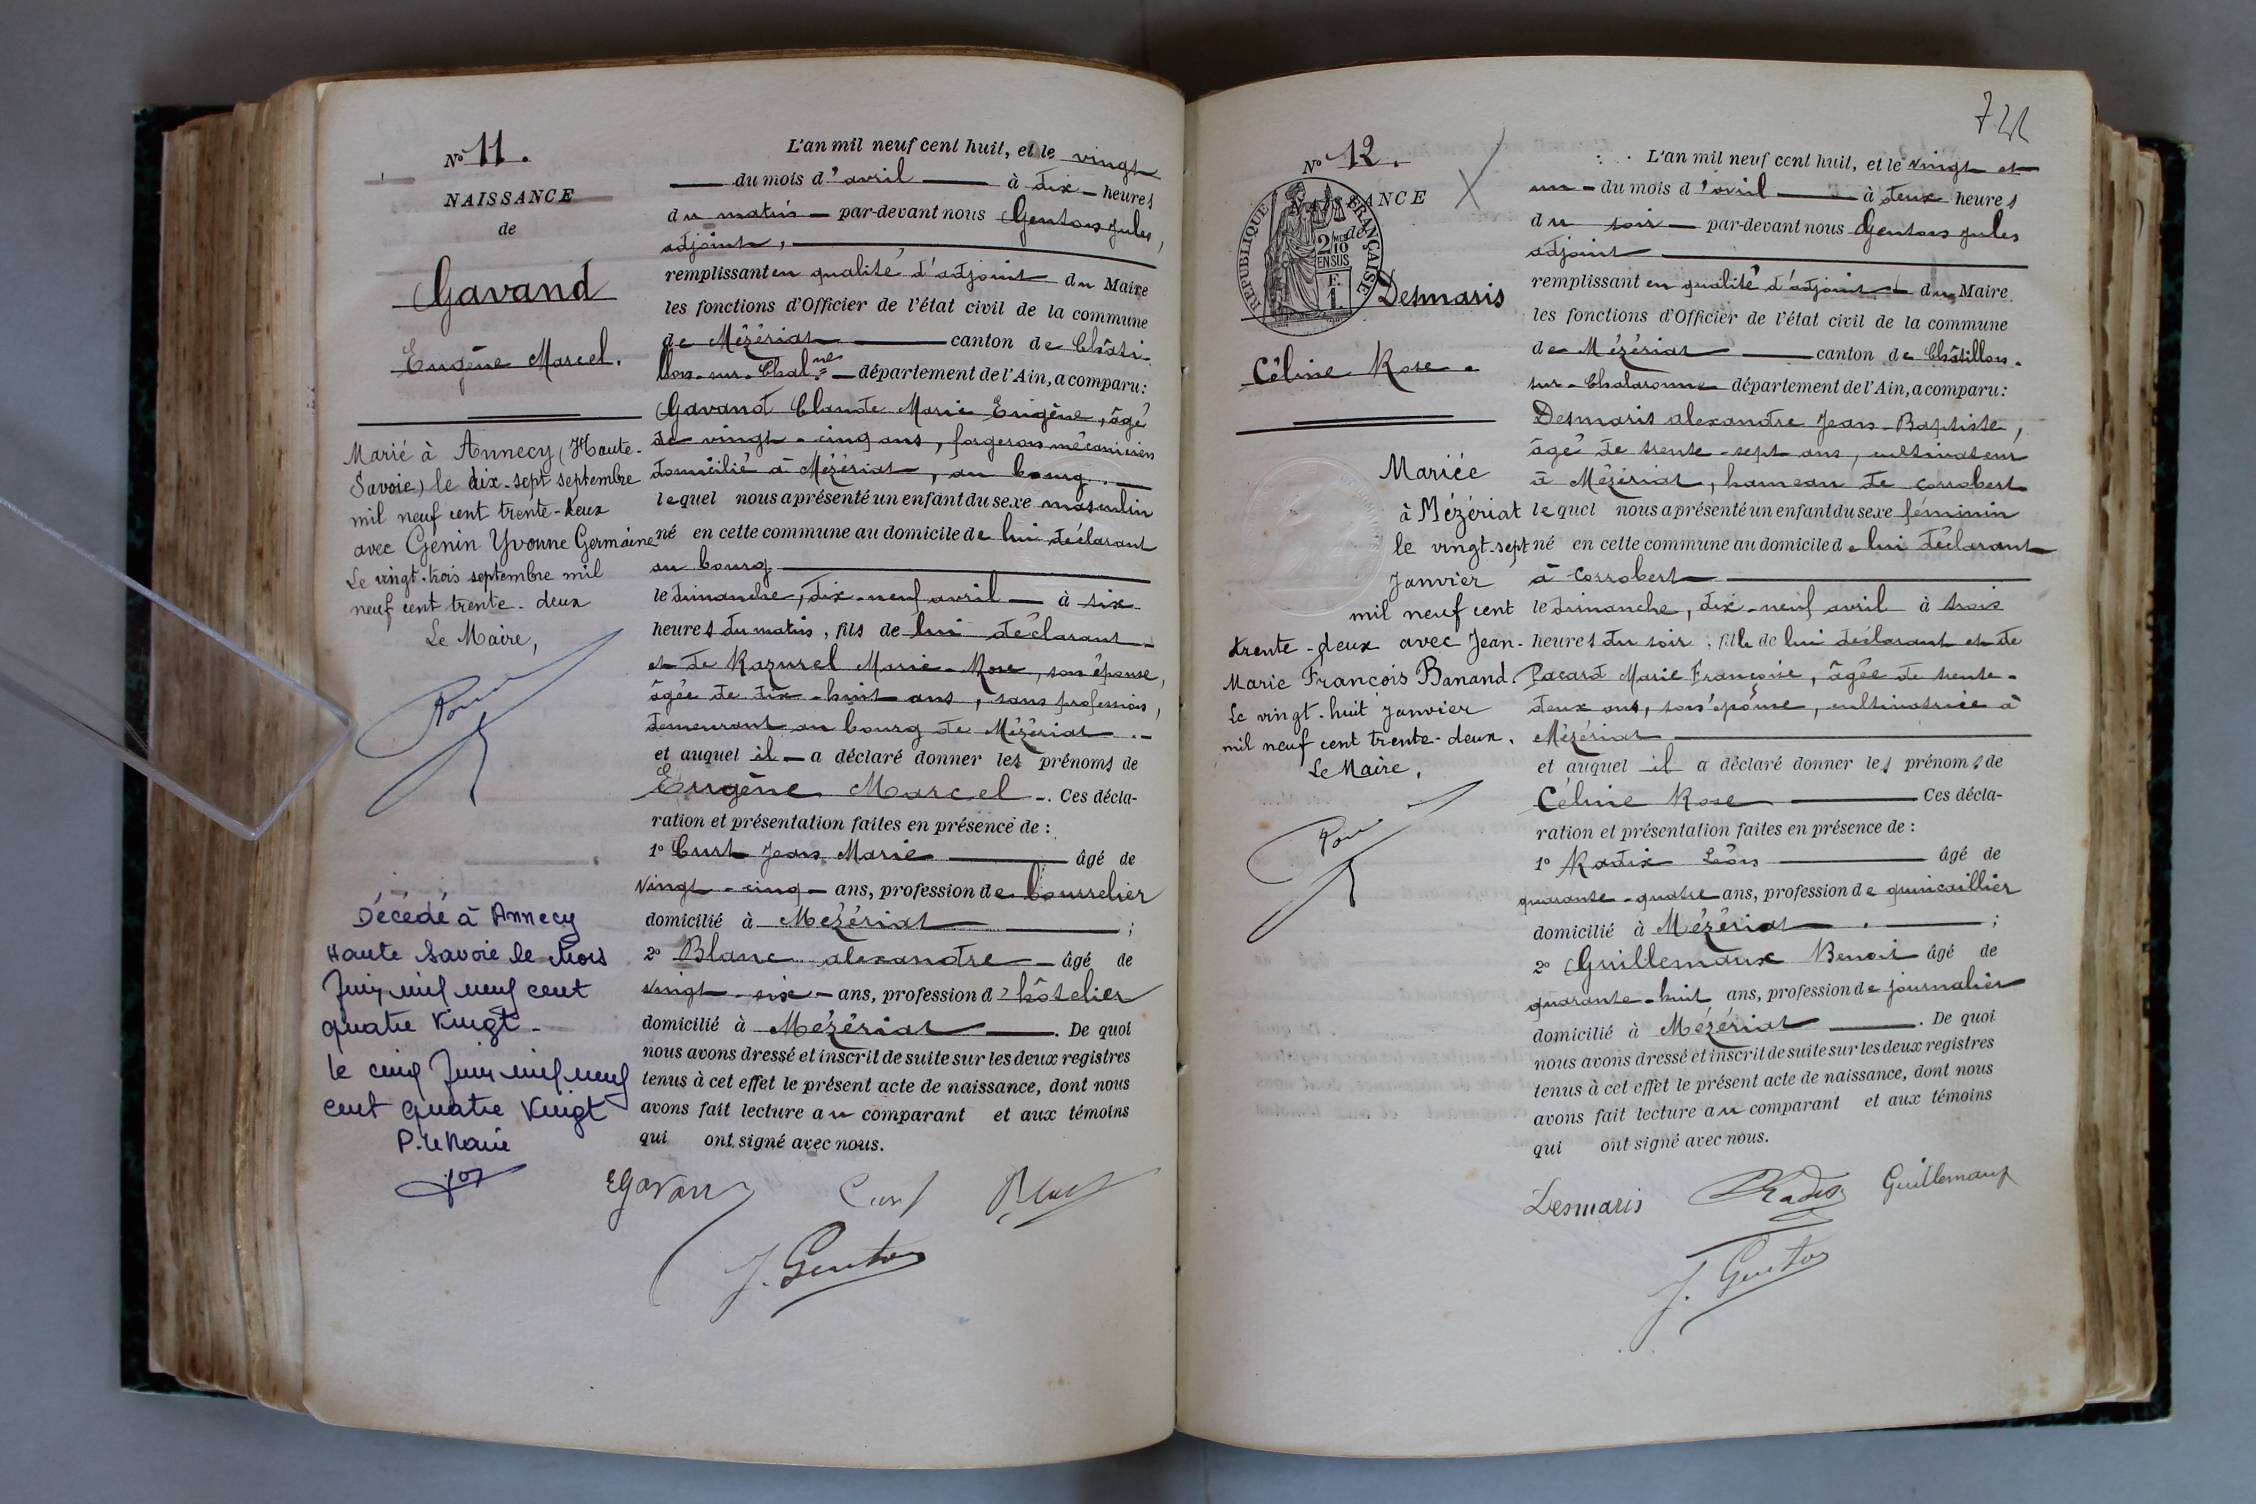 N° 11.
NAISSANCE
de
Gavand
Eugène Marcel.
Marié à Annecy (Haute-
Savoie) le dix-sept septembre
mil neuf cent trente-deux
avec Genin Yvonne Germaine
Le vingt-trois septembre mil
neuf cent trente-deux
Le Maire,
Décédé à Annecy
Haute Savoie le trois
Juin mil neuf cent
quatre vingt -
le cinq Juin mil neuf
cent quatre vingt
P. le Maire
L'an mil neuf cent huit, et le vingt
du mois d'avril à dix heures
du matin par-devant nous Genton Jules,
adjoint,
remplissant en qualité d'adjoint du Maire
les fonctions d'Officier de l'état civil de la commune
de Mézériat canton de Châti-
llon-sur-Chal.ne département de l'Ain, a comparu:
Gavand Claude Marie Eugène, âgé
de vingt-cinq ans, forgeron mécanicien
domicilié à Mézériat, au bourg.
lequel nous a présenté un enfant du sexe masculin
né en cette commune au domicile de lui déclarant
au bourg
le dimanche, dix-neuf avril à six
heures du matin, fils de lui déclarant
et de Razurel Marie-Rose, son épouse,
âgée de dix-huit ans, sans profession,
demeurant au bourg de Mézériat.
et auquel il a déclaré donner les prénoms de
Eugène Marcel. Ces décla-
ration et présentation faites en présence de :
1° Curt Jean Marie âgé de
vingt-cinq ans, profession de bourrelier
domicilié à Mézériat ;
2° Blanc alexandre âgé de
vingt-six ans, profession d'hôtelier
domicilié à Mézériat. De quoi
nous avons dressé et inscrit de suite sur les deux registres
tenus à cet effet le présent acte de naissance, dont nous
avons fait lecture au comparant et aux témoins
qui ont signé avec nous.
EGavand Curt Blanc
J. Genton
721
N° 12.
NAISSANCE
de
RÉPUBLIQUE FRANÇAISE
2/10
EN SUS
F.
1.
Desmaris
Céline Rose.
Mariée
à Mézériat
le vingt-sept
Janvier
mil neuf cent
trente-deux avec Jean-
Marie François Banand.
Le vingt-huit janvier
mil neuf cent trente-deux.
Le Maire,
L'an mil neuf cent huit, et le vingt et
un du mois d'avril à deux heures
du soir par-devant nous Genton Jules
adjoint
remplissant en qualité d'adjoint du Maire
les fonctions d'Officier de l'état civil de la commune
de Mézériat canton de Châtillon-
sur-Chalaronne département de l'Ain, a comparu:
Desmaris alexandre Jean-Baptiste,
âgé de trente-sept ans, cultivateur
à Mézériat, hameau de Corrobert
lequel nous a présenté un enfant du sexe féminin
né en cette commune au domicile de lui déclarant
à Corrobert
le dimanche, dix-neuf avril à trois
heures du soir, fille de lui déclarant et de
Pacard Marie Françoise, âgée de trente-
deux ans, son épouse, cultivatrice à
Mézériat
et auquel il a déclaré donner les prénoms de
Céline Rose Ces décla-
ration et présentation faites en présence de :
1° Radix Léon âgé de
quarante-quatre ans, profession de quincaillier
domicilié à Mézériat ;
2° Guillemaux Benoit âgé de
quarante-huit ans, profession de journalier
domicilié à Mézériat. De quoi
nous avons dressé et inscrit de suite sur les deux registres
tenus à cet effet le présent acte de naissance, dont nous
avons fait lecture au comparant et aux témoins
qui ont signé avec nous.
Desmaris Radix Guillemaux
J. Genton